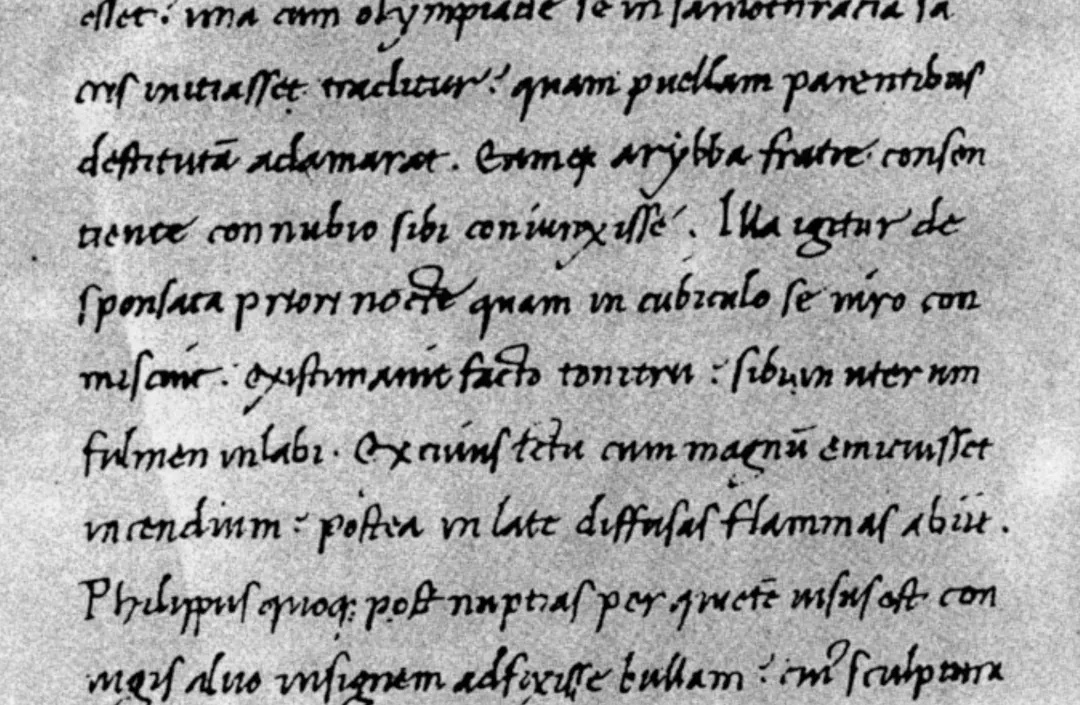 esset: una cum olympiade se in samothracia sa
cris initiasset traditur: quam puellam parentibus
destitutā adamarat. Eamqȝ arybba fratre consen
tiente connubio sibi coniunxisse. Illa igitur de
sponsata priori nocte quam in cubiculo se uiro con
misceuit: existimauit facto tonitru: sibi in uterum
fulmen inlabi. Ex cuius ictu cum magnū emicuisset
incendium: postea in late diffusas flammas abiit.
Philippus quoqȝ post nuptias per quietē uisus est con
iugis aluo insignem adfixisse bullam: cui' sculptura